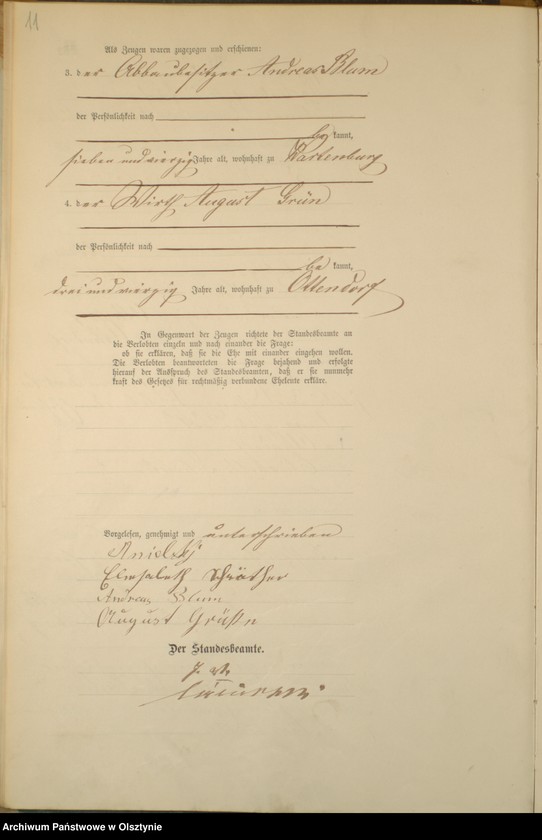 11
Als Zeugen waren zugezogen und erschienen:
3. der Abbaubesitzer Andreas Blum
der Persönlichkeit nach
be kannt,
sieben und vierzig Jahre alt, wohnhaft zu Wartenburg
4. der Wirth August Grün
der Persönlichkeit nach
be kannt,
drei und vierzig Jahre alt, wohnhaft zu Ottendorf
In Gegenwart der Zeugen richtete der Standesbeamte an
die Verlobten einzeln und nach einander die Frage:
ob sie erklären, daß sie die Ehe mit einander eingehen wollen.
Die Verlobten beantworteten die Frage bejahend und erfolgte
hierauf der Ausspruch des Standesbeamten, daß er sie nunmehr
kraft des Gesetzes für rechtmäßig verbundene Eheleute erkläre.
Vorgelesen, genehmigt und unterschrieben
Elisabeth
Andreas Blum
August
Der Standesbeamte.
Archiwum Państwowe w Olsztynie